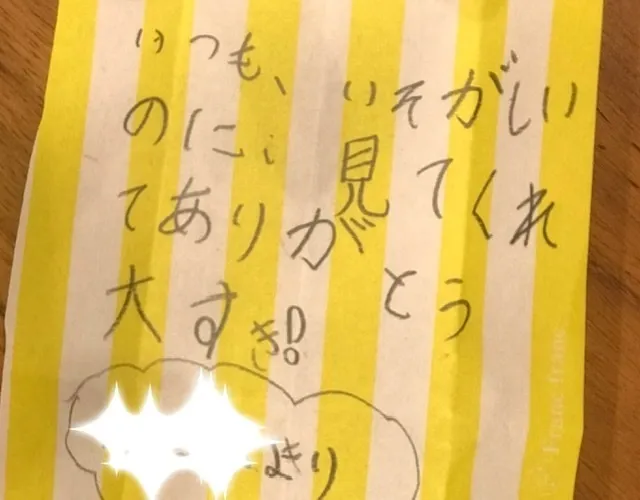 いつも、いそがしい
のに、見てくれ
てありがとう
大すき!
より
Francfranc